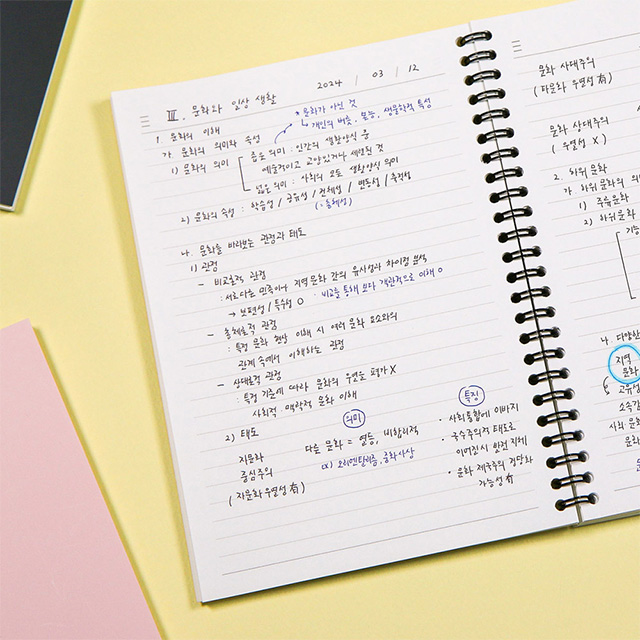 2024 / 03 / 12
Ⅲ. 문화와 일상 생활
→ 문화가 아닌 것
↳ 개인의 버릇, 본능, 생물학적 특성
1. 문화의 이해
가. 문화의 의미와 속성
1) 문화의 의미
좁은 의미 : 인간의 생활양식 중
예술적이고 교양있거나 세련된 것
넓은 의미 : 사회의 모든 생활양식 의미
2) 문화의 속성 : 학습성 / 공유성 / 전체성 / 변동성 / 축적성
(=총체성)
나. 문화를 바라보는 관점과 태도
1) 관점
- 비교론적 관점
: 서로다른 민족이나 지역 문화 간의 유사성과 차이점 분석
→ 보편성 / 특수성 O : 비교를 통해 보다 객관적으로 이해 O
- 총체론적 관점
: 특정 문화 현상 이해 시 여러 문화 요소와의
관계 속에서 이해하는 관점
- 상대론적 관점
: 특정 기준에 따라 문화의 우열을 평가 X
사회적 맥락적 문화 이해
2) 태도
자문화
중심주의
(자문화 우열성 有)
의미
다른 문화 = 열등, 비합리적
ex) 오리엔탈리즘, 중화사상
특징
· 사회통합에 이바지
· 국수주의적 태도로
이어질 시 발전 지체
· 문화 제국주의 정당화
가능성 有
문화 사대주의
(타문화 우열성 有)
문화 상대주의
(우열성 X)
2. 하위 문화
가. 하위문화의 의
1) 주류문화
2) 하위문화
기능
나. 다양한
지역
문화
고유성
소속감
사회 문화
문화